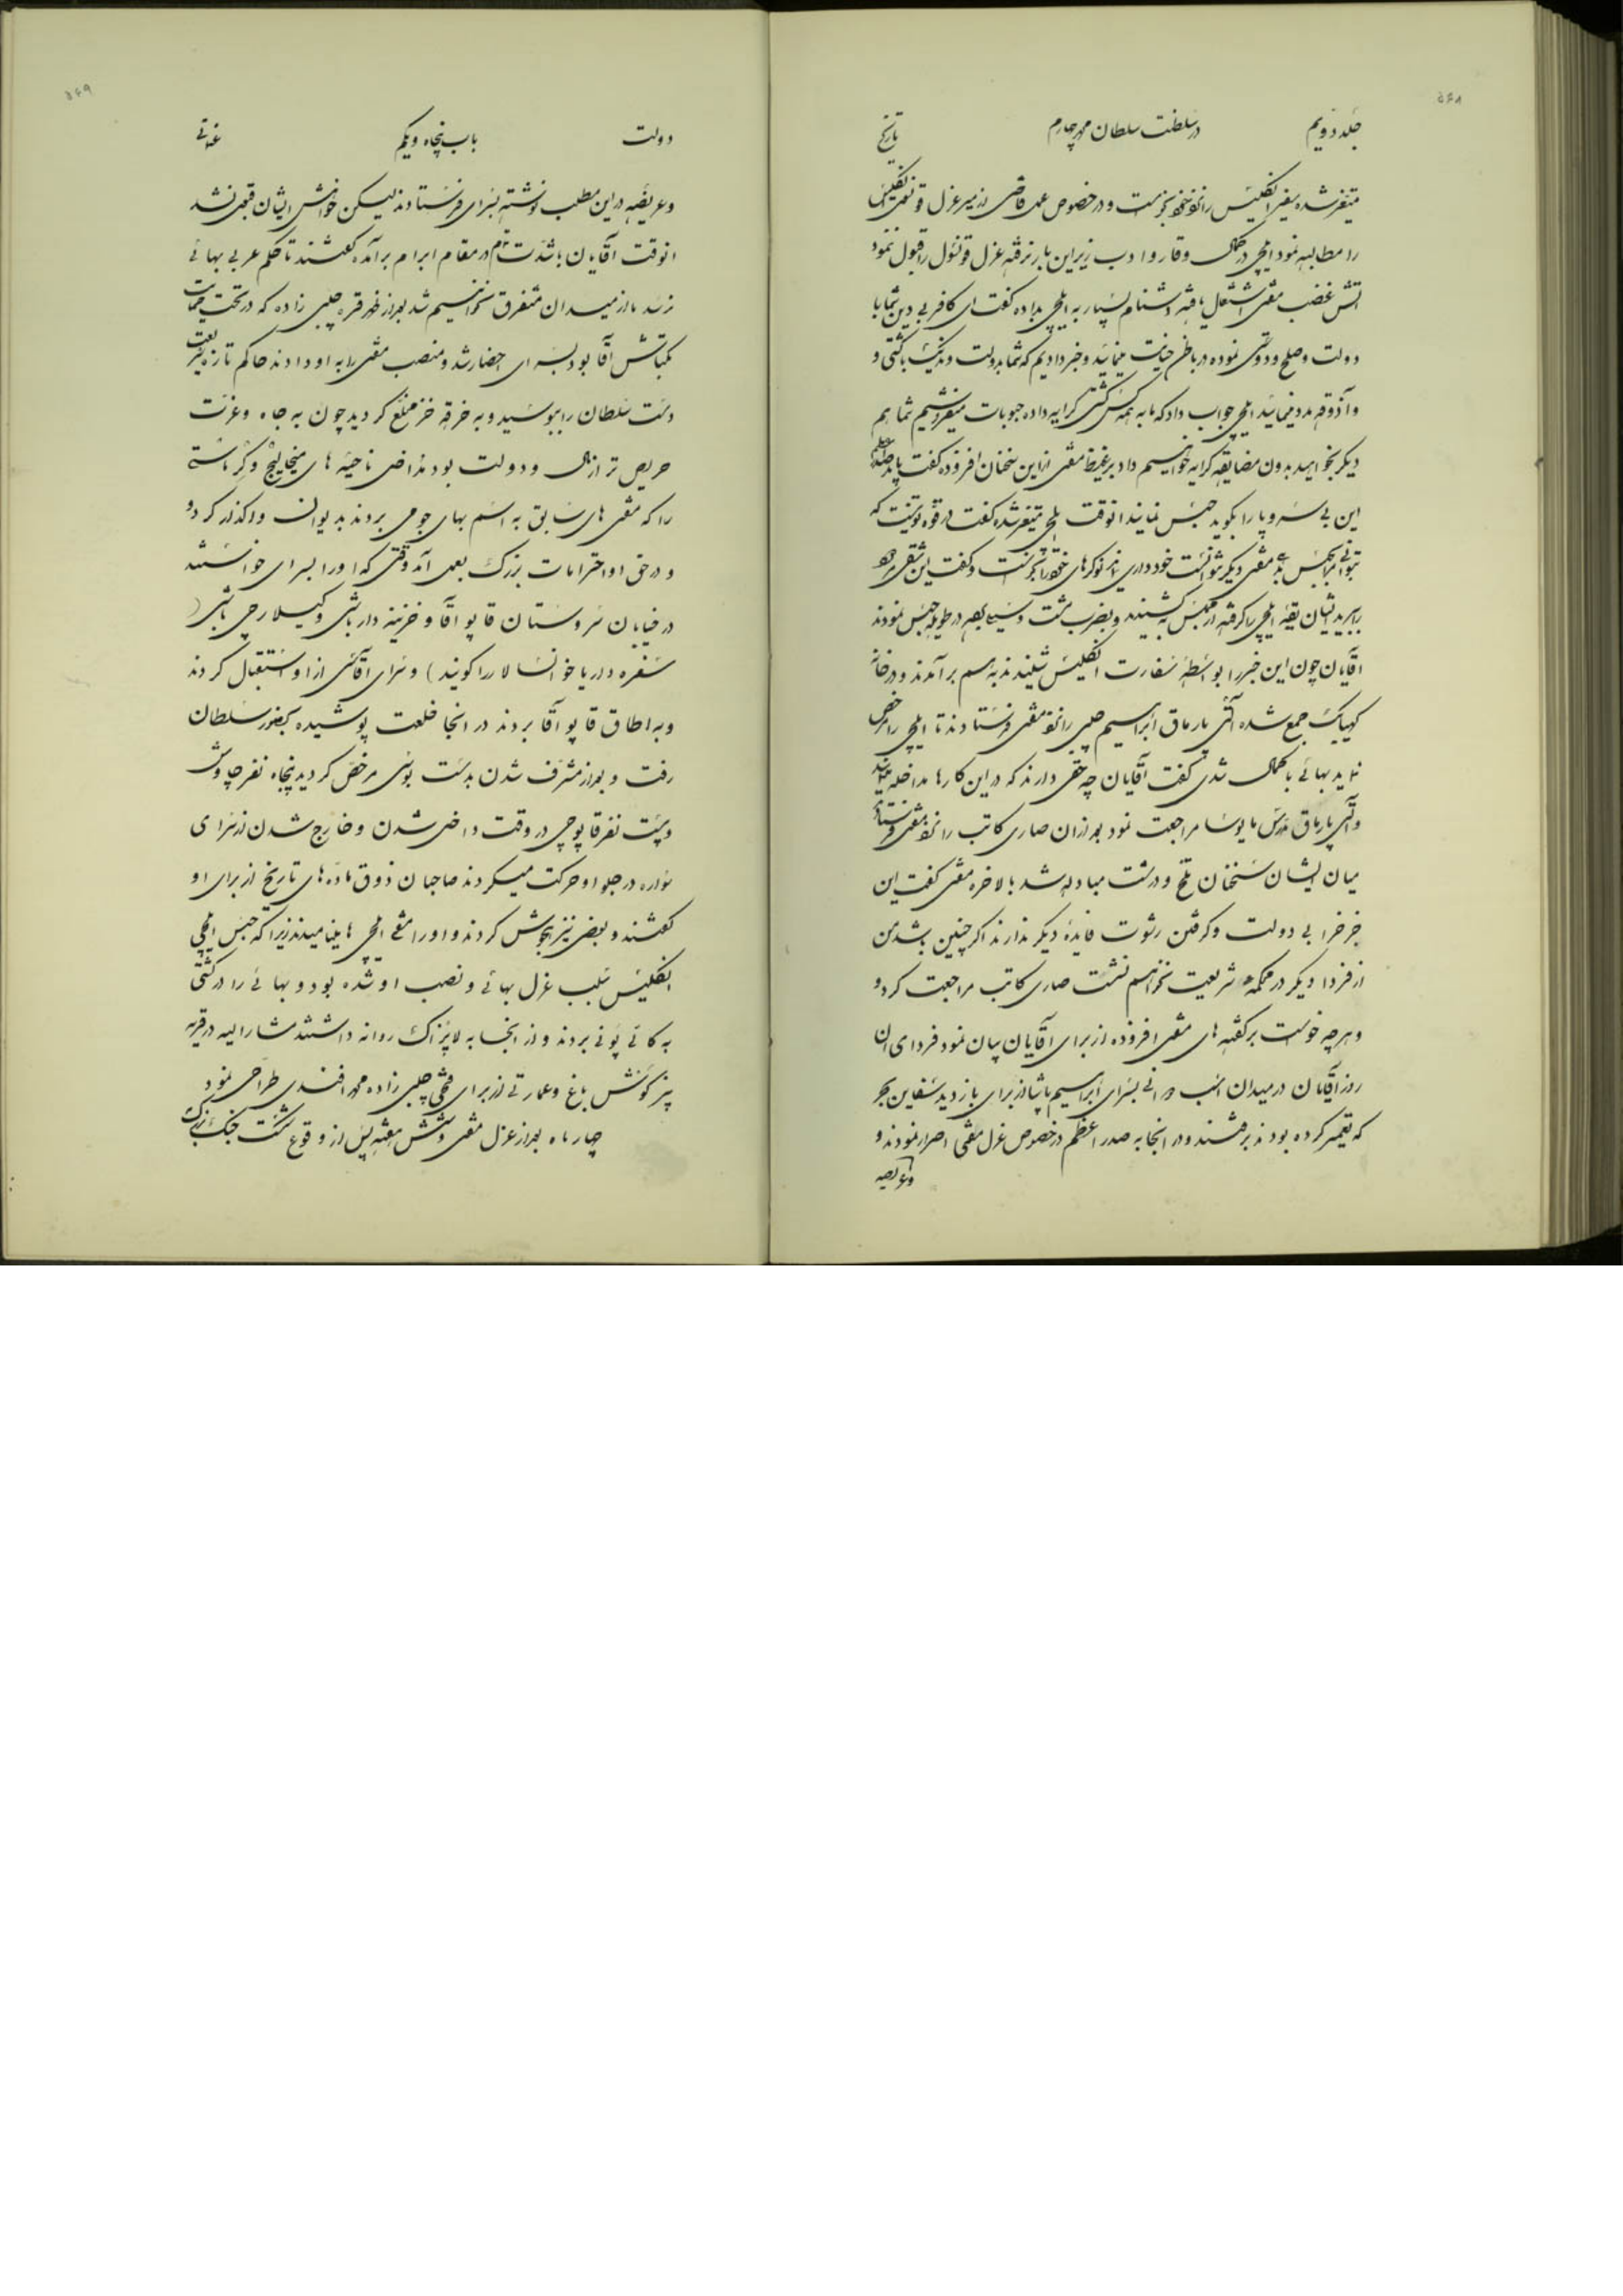 ۵۶۸
جلد دویم در سلطنت سلطان محمد چهارم تاریخ
متغیر شده سفیر انگلیس را نزد خود خواست و در خصوص عمل قاضی ازمیر عزل قونسل انگلیس
را مطالبه نمود ایلچی در کمال وقار و ادب زیر این بار نرفته عزل قونسول را قبول ننمود
آتش غضب مفتی اشتعال یافته دشنام بسیار به ایلچی بداده گفت ای کافر بی دین شما با
دولت و صلح و دوستی نموده در باطن خیانت مینمائید و خبر دادیم که شما بدولت وندیک با کشتی و
و آذوقه مدد مینمائید ایلچی جواب داد که ما به همه کس کشتی کرایه داده حبوبات میفروشیم شما هم
دیگر بخواهید بدون مضایقه کرایه خواهیم داد بر غیظ مفتی از این سخنان افزوده گفت
این بی سر و پا را بگوید حبس نمایند انوقت ایلچی متغیر شده گفت در قوه تو نیست که
بتوانی مرا حبس مفتی دیگر نتوانست خود داری نماید نوکرهای خود را گفت این شقی
ببرید ایشان یقه ایلچی را گرفته از مجلس کشیدند و بضرب مشت و سیلی در طویله حبس نمودند
آقایان چون این خبر را بواسطه سفارت انگلیس شنیدند بهم برآمدند و در خانه
کهیابک جمع شده آلتی پارماق ابراهیم چلبی را نزد مفتی فرستادند تا ایلچی را مرخص
نماید بهائی با کمال تندی گفت آقایان چه حقی دارند که در این کارها مداخله نمایند
و آلتی پارماق مأیوسا مراجعت نمود بعد از آن صاری کاتب را نزد مفتی
میان ایشان سخنان تلخ و درشت مبادله شد بالاخره مفتی گفت این
جز خرابی دولت و گرفتن رشوت فایده دیگر ندارند اگر چنین باشد من
از فردا دیگر در محکمه شریعت نخواهم نشست صاری کاتب مراجعت کرد و
و هر چه خواست بر گفته های مفتی افزوده از برای آقایان بیان نمود فردای آن
روز آقایان در میدان اسب دوانی بسرای ابراهیم پاشا از برای بازدید سفاین
که تعمیر کرده بودند برفتند و در انجا به صدر اعظم در خصوص عزل مفتی اصرار نمودند و
و عریضه
۵۶۹
دولت باب پنجاه و یکم عثمانی
و عریضه در این مطلب نوشته بسرای فرستادند لیکن خواهش ایشان قبول نشد
انوقت آقایان با شدت تمام در مقام ابرام برآمده گفتند تا حکم عزل بهائی
نرسد ما از میدان متفرق نخواهیم شد بعد از ظهر قره چلبی زاده که در تحت حمایت
بکتاش آقا بود بسرای احضار شد و منصب مفتی را به او دادند حاکم تازه شریعت
دست سلطان را ببوسید و به خرقه خز مخلع گردید چون به جاه و عزت
حریص تر از مال و دولت بود اراضی ناحیه های میخالیج و کرماستی
را که مفتی های سابق به اسم بهای جو می بردند به دیوان واگذار کرد و
و در حق او احترامات بزرگ بعمل آمد وقتی که او را بسرای خواستند
در خیابان سروستان قاپو آقا و خزینه دار باشی و کیلارجی باشی (
سفره دار یا خوانسالار را گویند) و سرای آقاسی از او استقبال کردند
و به اطاق قاپو آقا بردند در انجا خلعت پوشیده بحضور سلطان
رفت و بعد از مشرف شدن بدست بوسی مرخص گردید پنجاه نفر چاوش
و بیست نفر قاپوچی در وقت داخل شدن و خارج شدن از سرای
سواره در جلو او حرکت میکردند صاحبان ذوق ماده های تاریخ از برای او
گفتند و بعضی نیز هجوش کردند و او را مفتی ایلچی ها مینامیدند زیرا که حبس ایلچی
انگلیس سبب عزل بهائی و نصب او شده بود و بهائی را در کشتی
به کانی پونی بردند و از انجا به لاپزاک روانه داشتند مشارالیه در قریه
بز کونش باغ و عمارتی از برای فتحی چلبی زاده محمد افندی طراحی نمود
چهار ماه بعد از عزل مفتی و شش هفته پس از وقوع شکست جنگ بزرگ